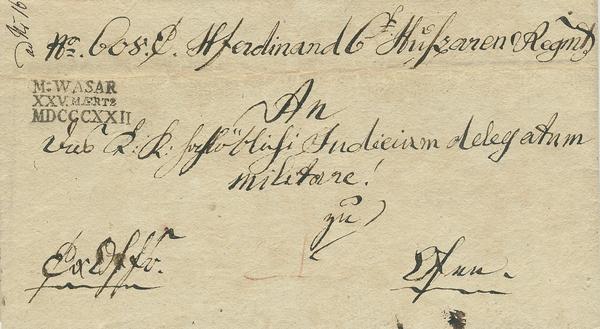 No. 608. E. H. Ferdinand 6t Huszaren Regmt
M: WASAR
XXV. MÆRTZ
MDCCCXXII
An
Das K: K: hochlöbliche Iudicium delegatum
militare!
zu
Ex Offo. Ofen.